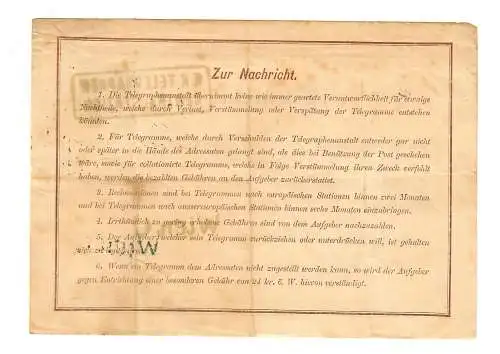 Zur Nachricht.
1. Die Telegraphenanstalt übernimmt keine wie immer geartete Verantwortlichkeit für etwaige
Nachtheile, welche durch Verlust, Verstümmelung oder Verspätung der Telegramme entstehen
können.
2. Für Telegramme, welche durch Verschulden der Telegraphenanstalt entweder gar nicht
oder später in die Hände des Adressaten gelangt sind, als dies bei Benützung der Post geschehen
wäre, sowie für collationirte Telegramme, welche in Folge Verstümmelung ihren Zweck verfehlt
haben, werden die bezahlten Gebühren an den Aufgeber zurückerstattet.
3. Reclamationen sind bei Telegrammen nach europäischen Stationen binnen zwei Monaten
und bei Telegrammen nach aussereuropäischen Stationen binnen sechs Monaten einzubringen.
4. Irrthümlich zu wenig erhobene Gebühren sind von dem Aufgeber nachzuzahlen.
5. Der Aufgeber, welcher sein Telegramm zurückziehen oder unterdrücken will, ist gehalten
6. Wenn ein Telegramm dem Adressaten nicht zugestellt werden kann, so wird der Aufgeber
gegen Entrichtung einer besonderen Gebühr von 24 kr. ö. W. hievon verständigt.